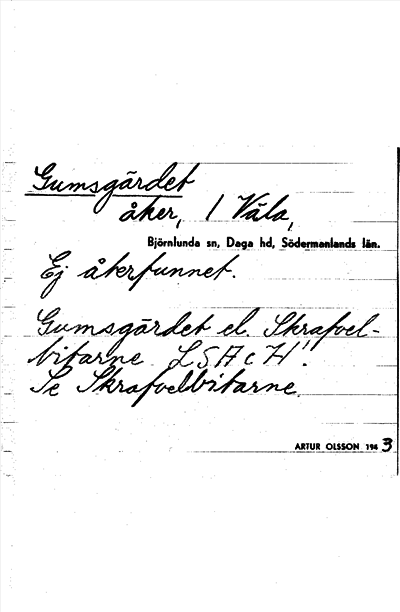 Gumsgärdet
åker, / Väla,
Björnlunda sn, Daga hd, Södermanlands län.
Ej återfunnet.
Gumsgärdet el. Skrafvel-
bitarne LSA c H'.
Se Skrafvelbitarne.
ARTUR OLSSON 1963